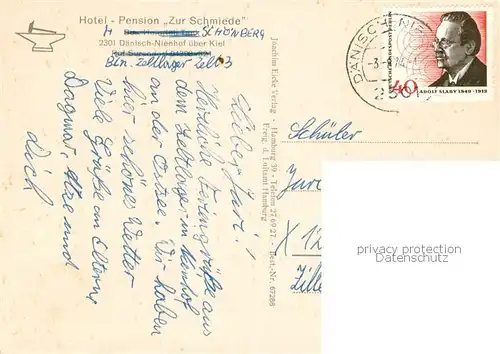 Hotel - Pension „Zur Schmiede”
SCHÖNBERG
2301 Dänisch-Nienhof über Kiel
Ben. Zeltlager Zelt 3
Lieber Juri!
Herzliche Feriengrüße aus
dem Zeltlager in Nienhof
an der Ostsee. Wir haben
hier schönes Wetter
Viele Grüße an Eltern,
Dagmar, Atze und
dich
Joachim Eicke Verlag - Hamburg 39 - Telefon 27 69 27 - Best.-Nr. 67288
Freig. d. Luftamt Hamburg
DÄNISCH-NIE
2301
40
ADOLF SLABY 1849-1913
Schüler
X 12
Zille
privacy protection
Datenschutz